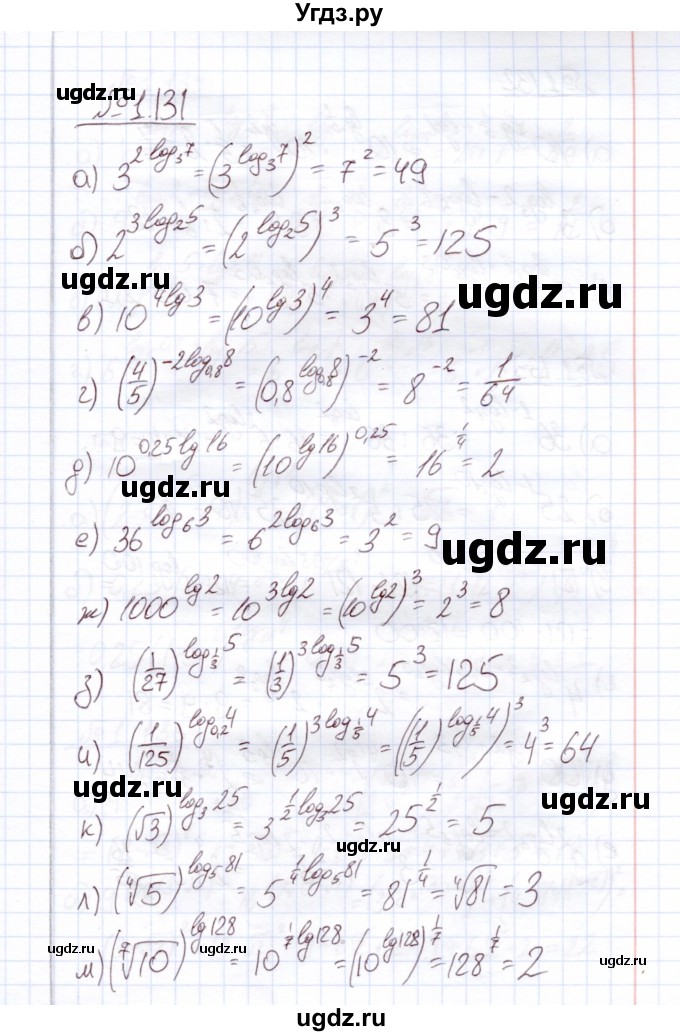 Угдз.ру
ugdz.ru
№1.131
а) 3^(2log₃7) = (3^(log₃7))^2 = 7^2 = 49
б) 2^(3log₂5) = (2^(log₂5))^3 = 5^3 = 125
ugdz.ru ugdz.ru
в) 10^(4lg3) = (10^(lg3))^4 = 3^4 = 81
ugdz.ru
г) (4/5)^(-2log₀,₈8) = (0,8^(log₀,₈8))^(-2) = 8^(-2) = 1/64
д) 10^(0,25lg16) = (10^(lg16))^(0,25) = 16^(1/4) = 2
ugdz.ru
е) 36^(log₆3) = 6^(2log₆3) = 3^2 = 9
ugdz.ru
ugdz.ru
ж) 1000^(lg2) = 10^(3lg2) = (10^(lg2))^3 = 2^3 = 8
ugdz.ru
з) (1/27)^(log_(1/3)5) = (1/3)^(3log_(1/3)5) = 5^3 = 125
ugdz.ru
и) (1/125)^(log₀,₂4) = (1/5)^(3log_(1/5)4) = ((1/5)^(log_(1/5)4))^3 = 4^3 = 64
ugdz.ru
ugdz.ru
к) (√3)^(log₃25) = 3^(1/2 log₃25) = 25^(1/2) = 5
ugdz.ru
л) (⁴√5)^(log₅81) = 5^(1/4 log₅81) = 81^(1/4) = ⁴√81 = 3
ugdz.ru
м) (⁷√10)^(lg128) = 10^(1/7 lg128) = (10^(lg128))^(1/7) = 128^(1/7) = 2
ugdz.ru ugdz.ru ugdz.ru
ugdz.ru